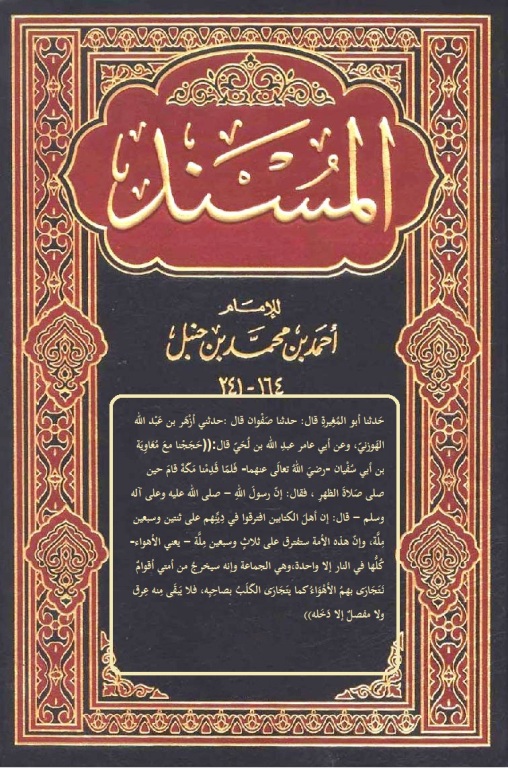 المُسْنَد
للإمام
أحمد بن محمَّد بن حنبل
١٦٤ - ٢٤١
حَدثنا أبو المُغِيرةِ قال: حدثنا صَفْوان قال :حدثني أزْهَر بن عَبْد الله
الهَوزنيّ، وعن أبي عامر عبدِ الله بن لُحَيّ قال:((حَجَجْنا معَ مُعَاوِيَة
بن أبي سُفْيان -رضيَ اللهُ تعالَى عنهما- فَلمّا قَدِمْنا مَكّةَ قامَ حين
صلى صَلاةَ الظهرِ ، فقال: إنّ رسولَ اللهِ – صلى الله عليه وعلى آله
وسلم – قال: إن أهلَ الكتابين افترقوا في دِينِهم على ثنتين وسبعين
مِلّة، وإنّ هذه الأمة ستفترق على ثلاثٍ وسبعين مِلَّة – يعني الأهواء-
كلُّها في النار إلا واحدة،وهي الجماعة وإنه سيخرجُ من أمتي أقوامٌ
تَتَجَارَى بهمُ الأَهْوَاءُ كما يتَجَارَى الكَلَبُ بصاحِبِه، فلا يَبْقَى مِنه عِرق
ولا مفصلٌ إلا دَخَله))